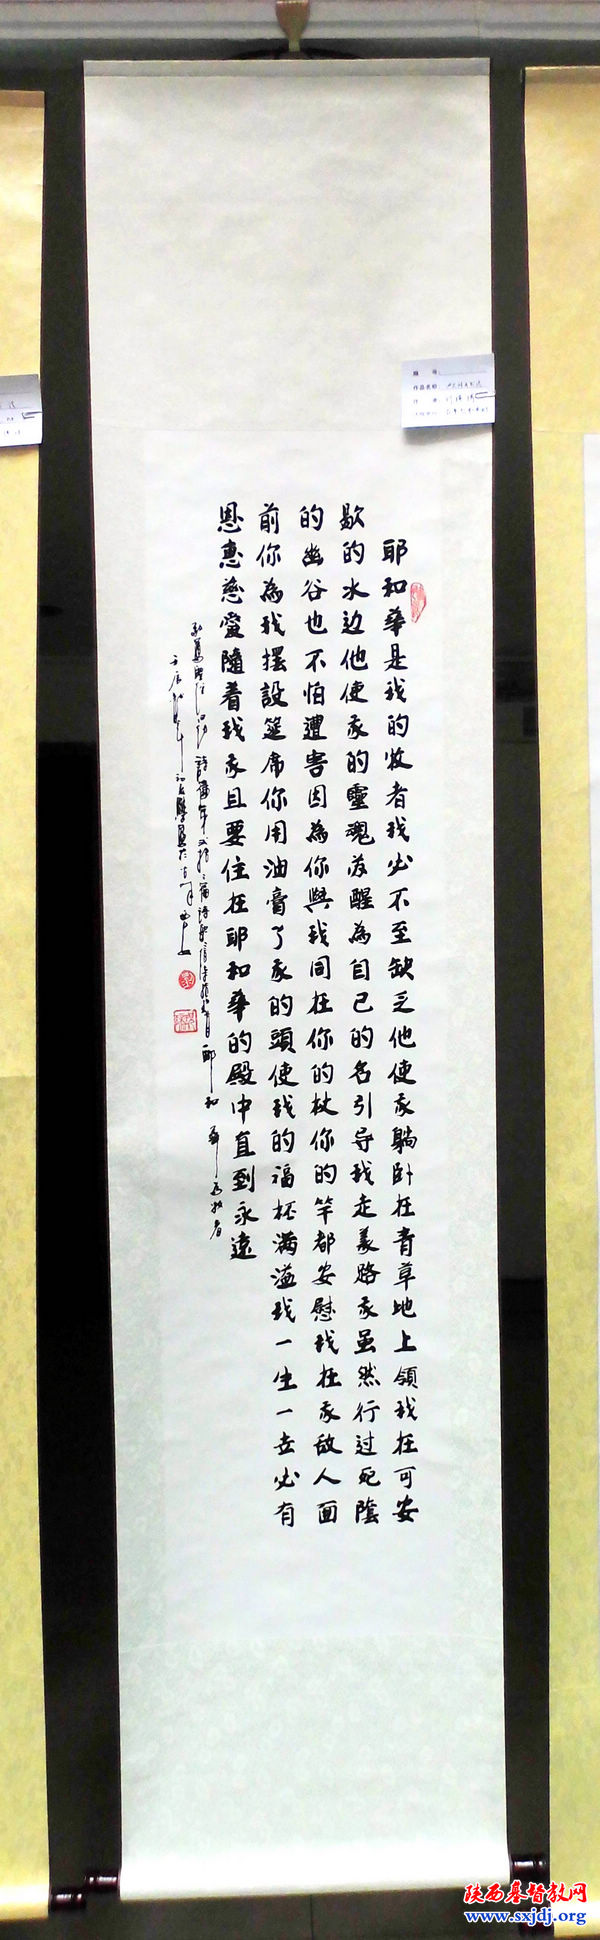 耶和華是我的牧者我必不至缺乏他使我躺卧在青草地上領我在可安
歇的水边他使我的靈魂苏醒為自己的名引导我走義路我虽然行过死陰
的幽谷也不怕遭害因為你與我同在你的杖你的竿都安慰我在我敌人面
前你為我擺設筵席你用油膏了我的頭使我的福杯满溢我一生一世必有
恩惠慈愛隨着我我且要住在耶和華的殿中直到永遠
詩篇 耶和華為牧者
作品名称
作者
陕西基督教网
www.sxjdj.org